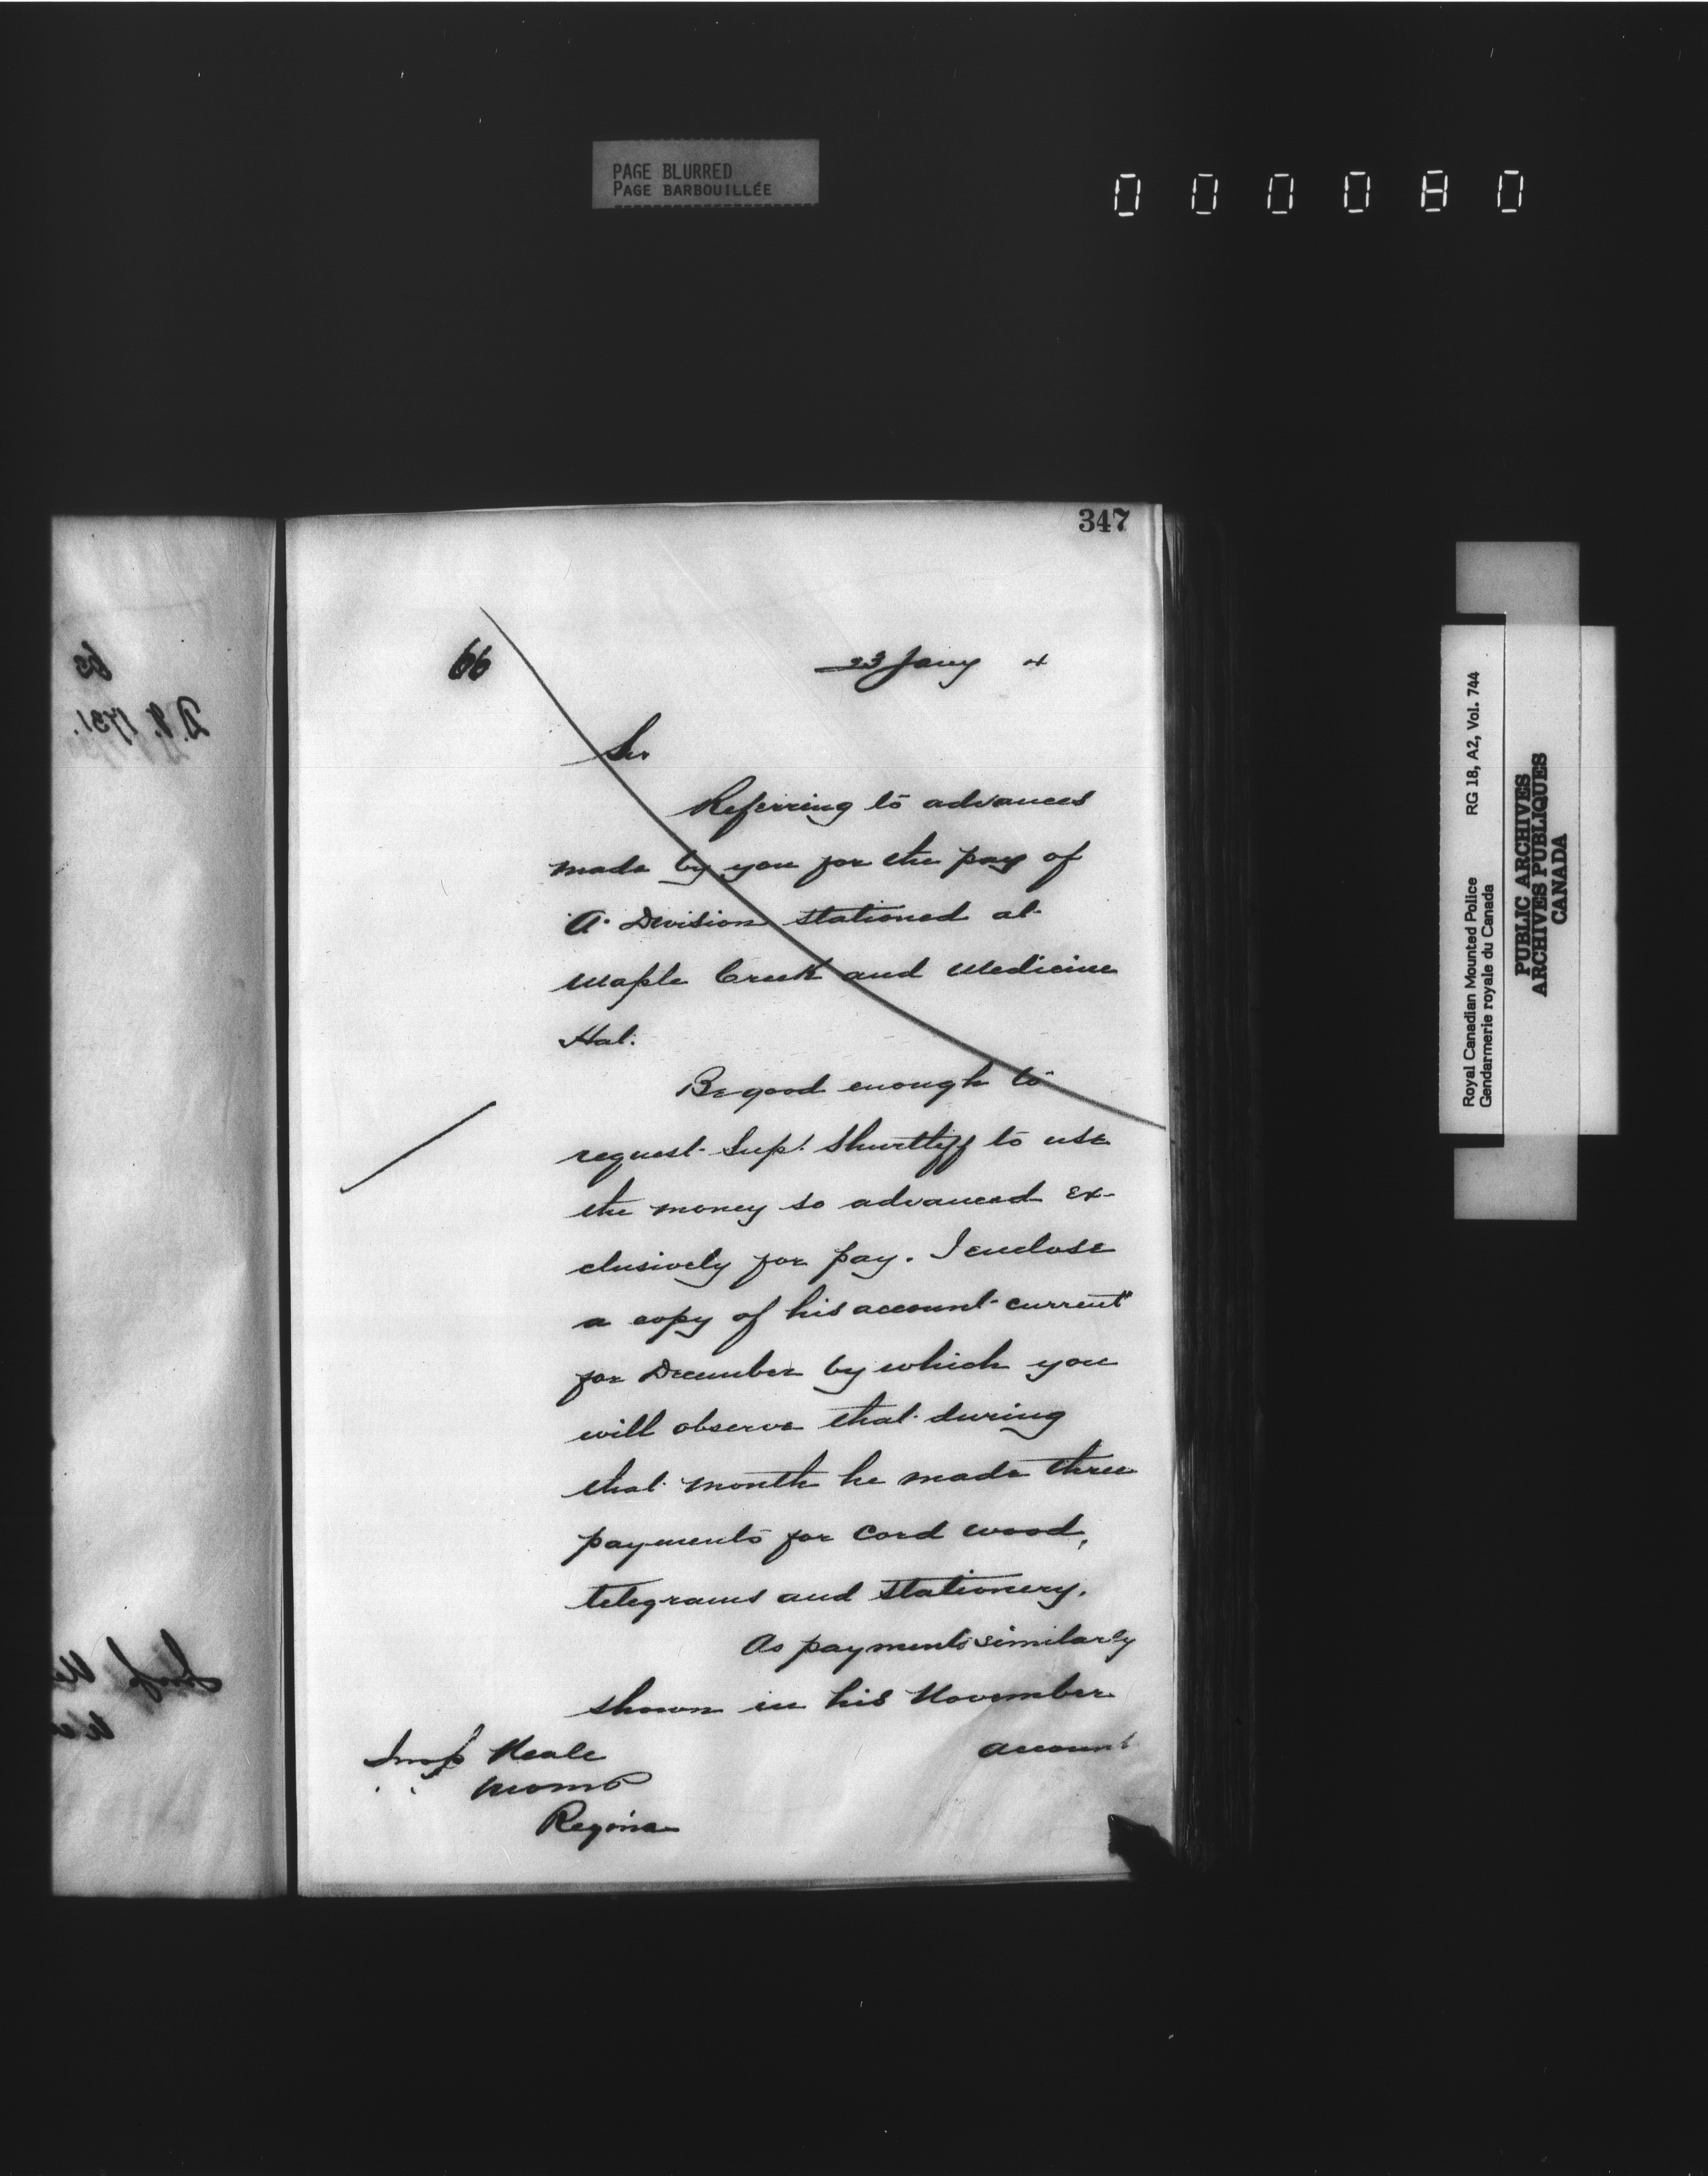 PAGE BLURRED
PAGE BARBOUILLÉE
000080
347
66
23 Jany 4
Sir
Referring to advances
made by you for the pay of
"A" Division stationed at
Maple Creek and Medicine
Hat.
Be good enough to
request Supt. Shurtliff to use
the money so advanced ex-
clusively for pay. I enclose
a copy of his account-current
for December by which you
will observe that during
that month he made three
payments for cord wood,
telegrams and stationery.
As payments similarly
shown in his November
account
Insp Neale
NWMP
Regina
65
D.S. 1731.
Insp
Royal Canadian Mounted Police RG 18, A2, Vol. 744
Gendarmerie royale du Canada
PUBLIC ARCHIVES
ARCHIVES PUBLIQUES
CANADA